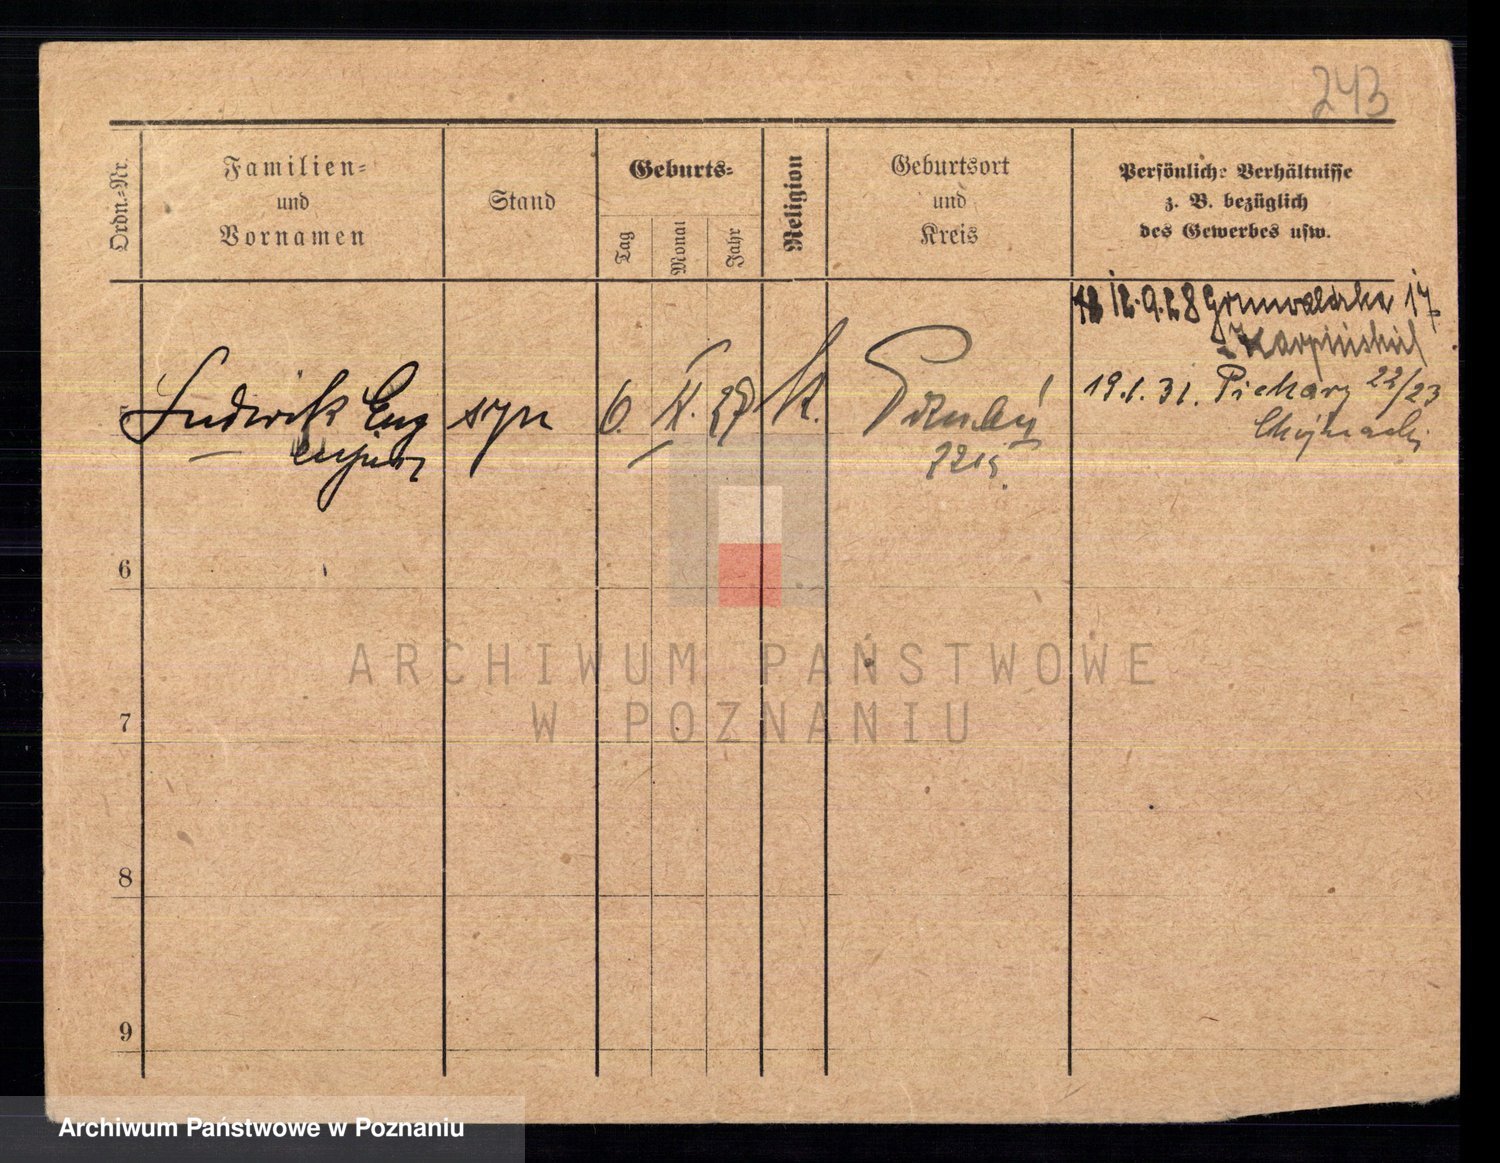 243
Ordn.-Nr.
Familien-
und
Vornamen
Stand
Geburts-
Tag
Monat
Jahr
Religion
Geburtsort
und
Kreis
Persönliche Verhältnisse
z. B. bezüglich
des Gewerbes usw.
12.9.28 Grunwaldzka 17
Karpiński
19.1.31. Piekary 22/23
5 Ludwik Eug syn 6. X. 27 K.
eniusz
7215.
6
7
8
9
ARCHIWUM PAŃSTWOWE
W POZNANIU
Archiwum Państwowe w Poznaniu